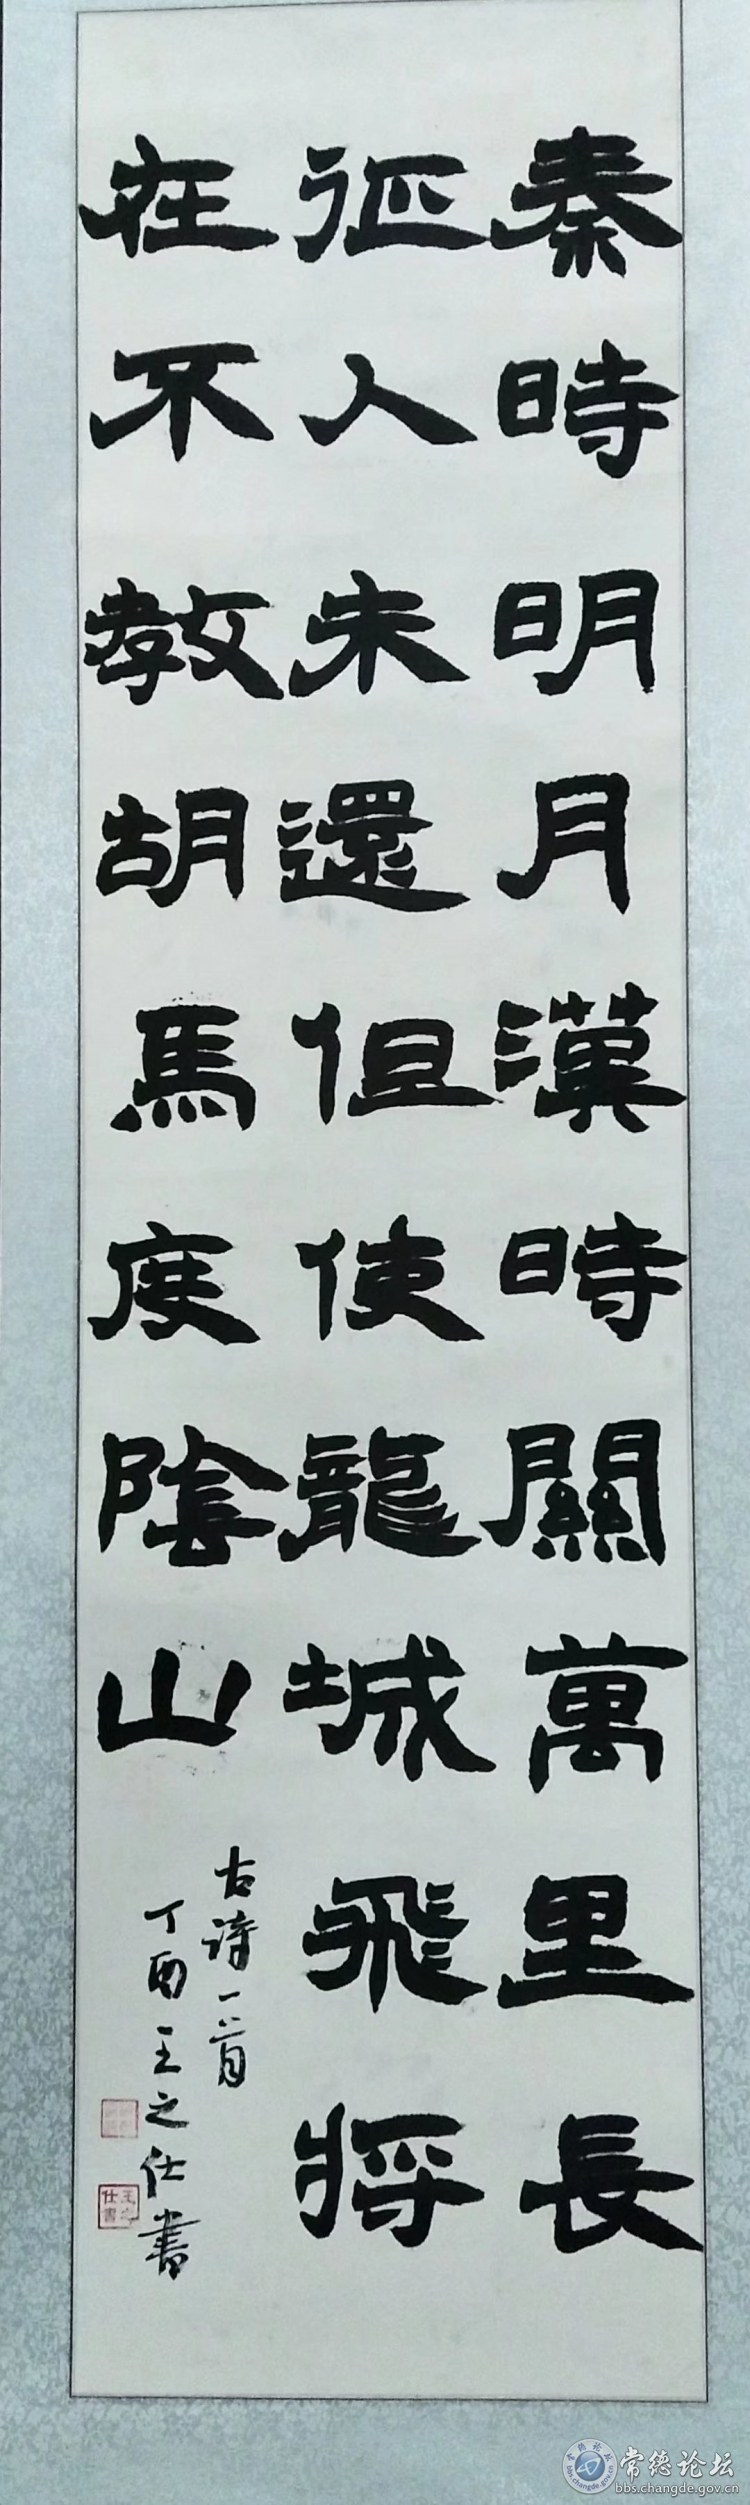 秦時明月漢時關萬里長
征人未還但使龍城飛將
在不教胡馬度陰山
古詩一首
丁酉王之仕書
王之仕書
常德论坛
bbs.changde.gov.cn